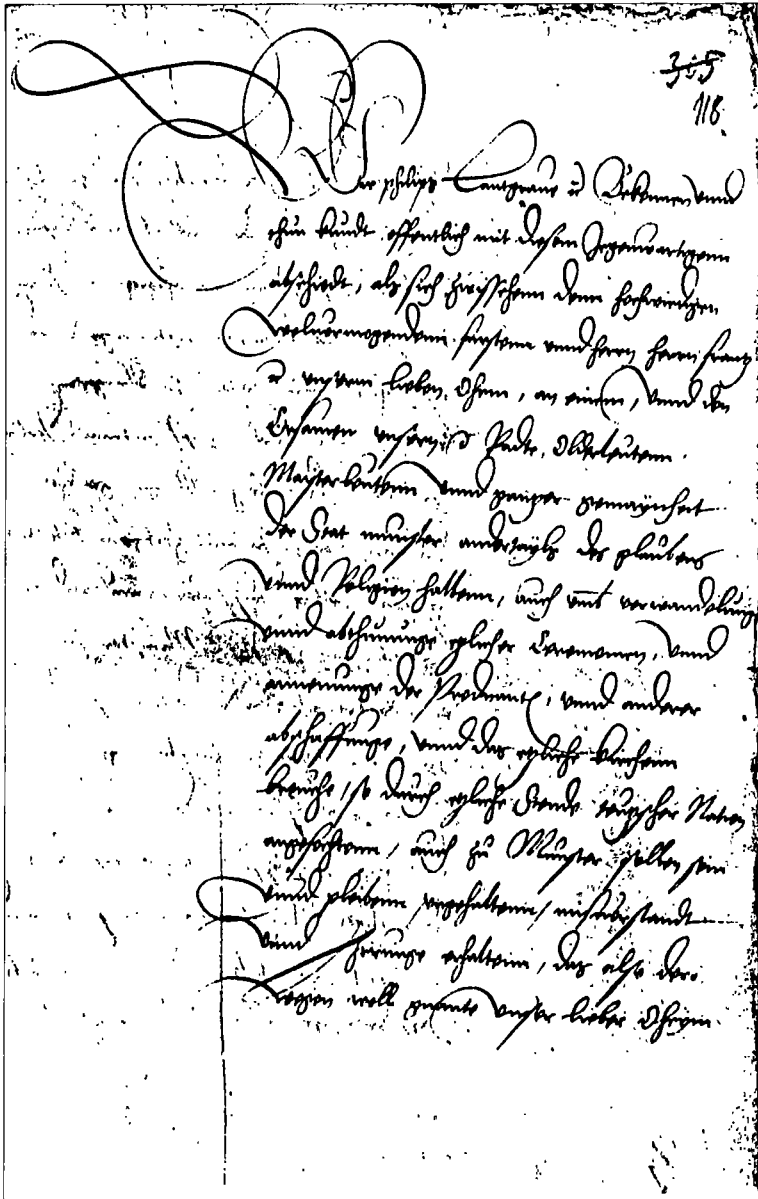 305
118.
Wir philips Lantgraue ꝛc Bekennen vnnd
thun kundt offentlich mit diesem Jegenwartigenn
abschiedt, als sich zwisschenn dem hochwirdigen
vnnd herrn hern frantz
ꝛc vnserm lieben Ohem, an einem, vnnd den
Ersamen Radte, Olderleutenn.
Maisterleutenn vnnd gantzer gemaynheit
der Stat munster andertayls des glaubens
vnnd Religion haltenn, auch vmb verwandelung
vnnd abthuunge etzlicher Ceremonien, vnnd
annemunge der Predicanten, vnnd anderer
abschaffunge, vnnd das etzliche kirchenn
breuche, so durch etzliche Stende teutzscher Nation
angefochtenn, auch zu Munster sollen sein
vnnd pleibenn, mißuerstandt
vnnd Irrunge erhaltenn, das also der-
wegen woll gnante vnser lieber Oheym.